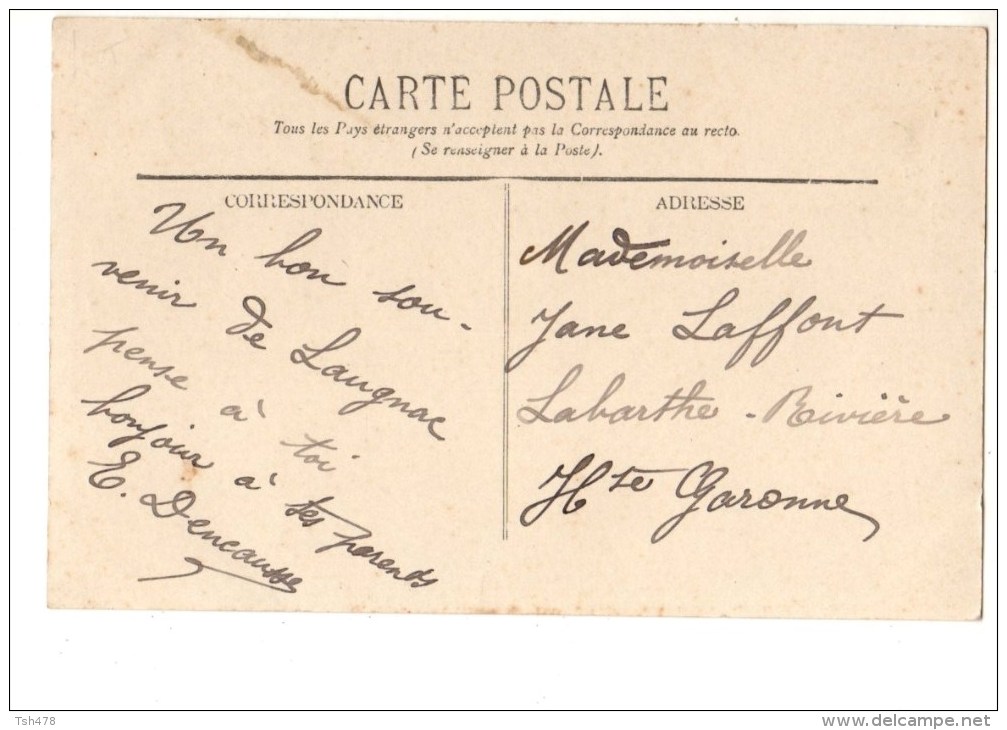 CARTE POSTALE
Tous les Pays étrangers n'acceptent pas la Correspondance au recto.
(Se renseigner à la Poste).
CORRESPONDANCE
Un bon sou-
venir de Laugnac
pense à toi
bonjour à tes parents
E. Dencausse
ADRESSE
Mademoiselle
Jane Laffont
Labarthe-Rivière
Hte Garonne
Tsh478
www.delcampe.net